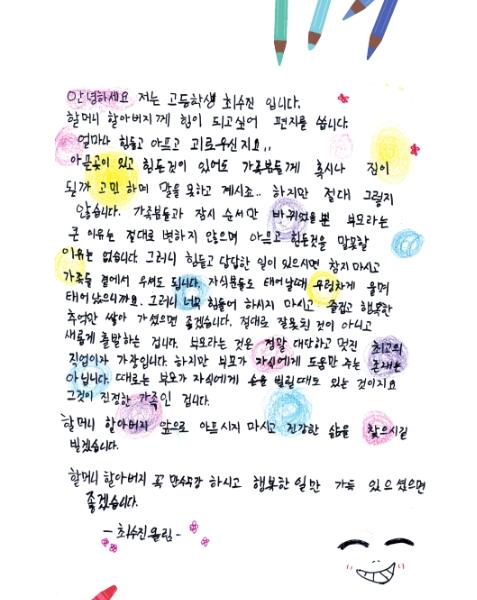 안녕하세요 저는 고등학생 최수진 입니다.
할머니 할아버지께 힘이 되고싶어 편지를 씁니다.
얼마나 힘들고 아프고 괴로우신지요..
아픈곳이 있고 힘든것이 있어도 가족분들께 혹시나 짐이
될까 고민 하며 말을 못하고 계시죠.. 하지만 절대 그렇지
않습니다. 가족분들과 잠시 순서만 바뀌었을 뿐 부모라는
큰 이유는 절대로 변하지 않으며 아프고 힘든것을 말못할
이유는 없습니다. 그러니 힘들고 답답한 일이 있으시면 참지 마시고
가족들 곁에서 우셔도 됩니다. 자식분들도 태어날때 우렁차게 울며
태어났으니까요. 그러니 너무 힘들어 하지 마시고 즐겁고 행복한
추억만 쌓아 가셨으면 좋겠습니다. 절대로 잘못된 것이 아니고
새롭게 출발하는 겁니다. 부모라는 것은 정말 대단하고 멋진 최고의
직업이자 가장입니다. 하지만 부모가 자식에게 도움만 주는 존재는
아닙니다. 때로는 부모가 자식에게 손을 빌릴때도 있는 것이지요
그것이 진정한 가족인 겁니다.
할머니 할아버지 앞으로 아프시지 마시고 건강한 삶을 찾으시길
빌겠습니다.
할머니 할아버지 꼭 만수무강 하시고 행복한 일만 가득 있으셨으면
좋겠습니다.
- 최수진 올림 -